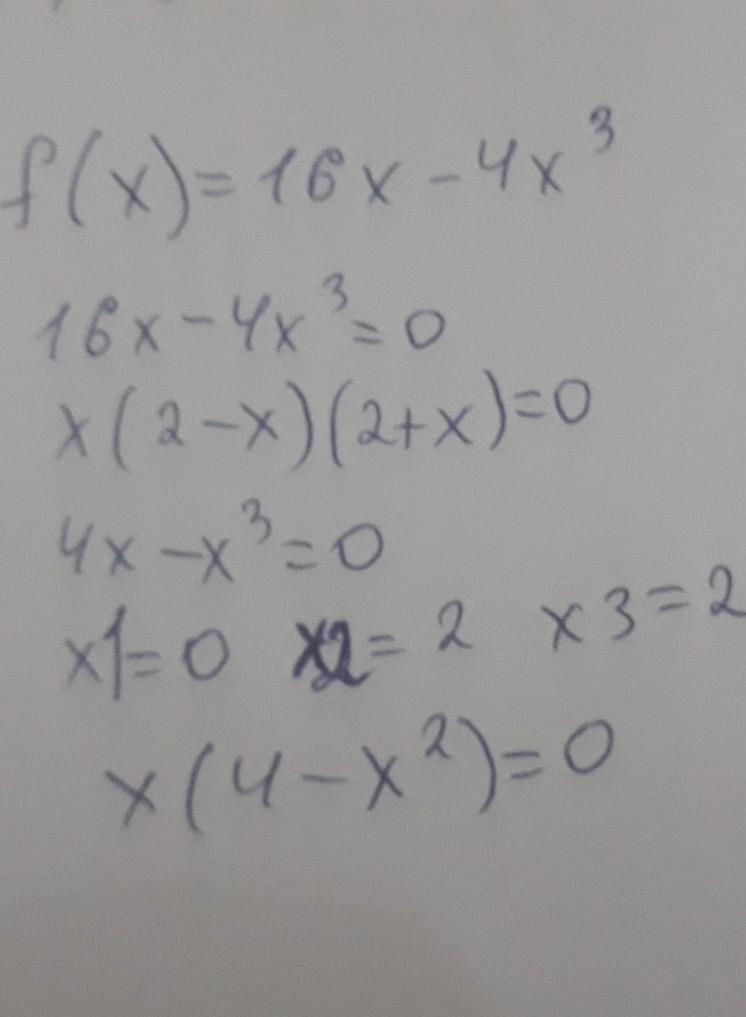 f(x)=16x-4x³
16x-4x³=0
x(2-x)(2+x)=0
4x-x³=0
x1=0 x2=2 x3=2
x(4-x²)=0